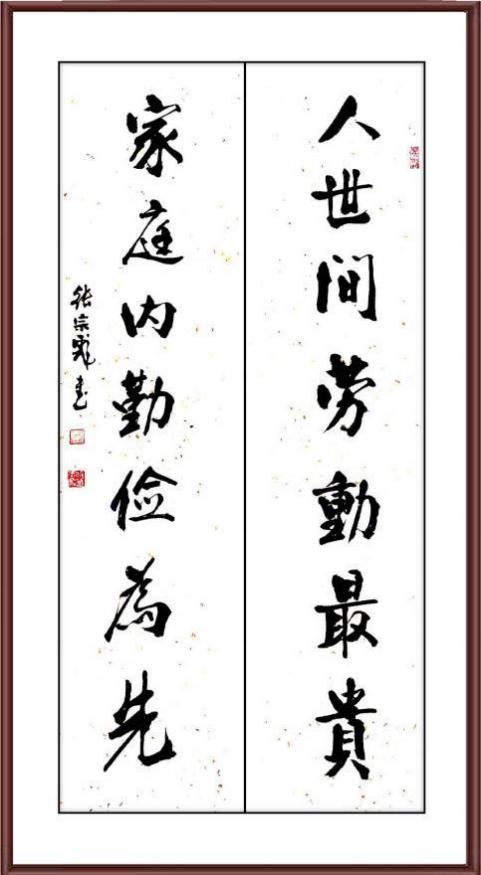 人世间劳動最貴
家庭内勤俭為先
张宗彪书